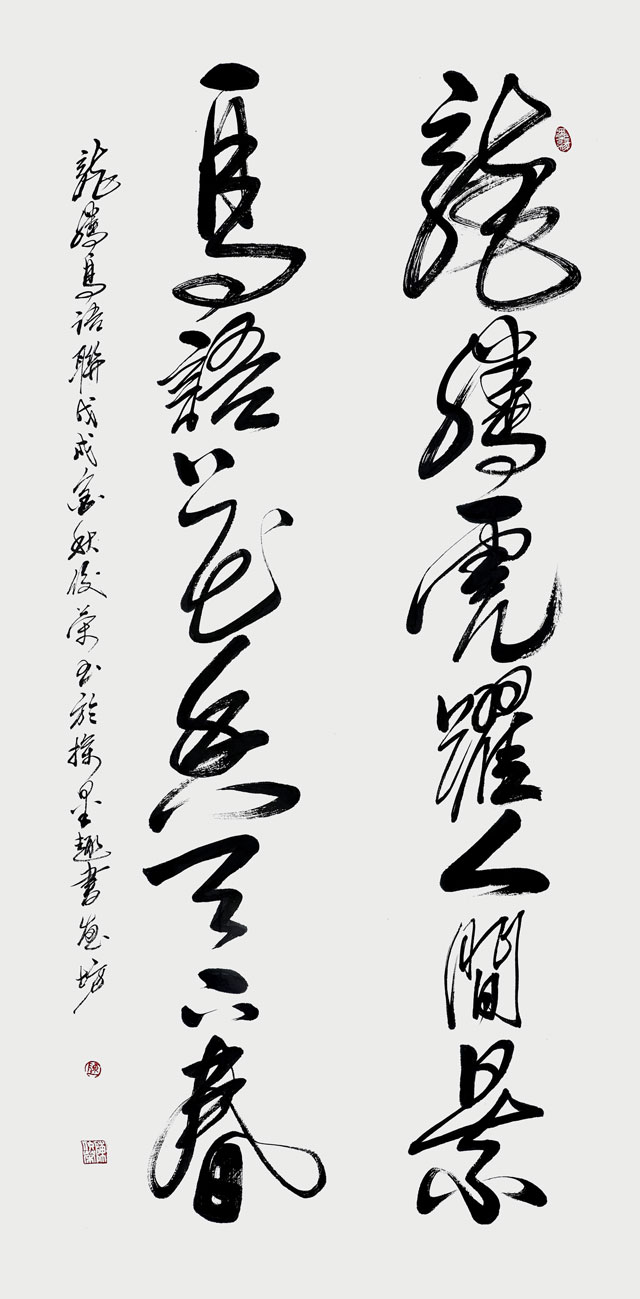 龍騰虎躍人間景
鳥語花香天下春
龍騰鳥語聯戊戌金秋俊榮书於墨趣書畫坊